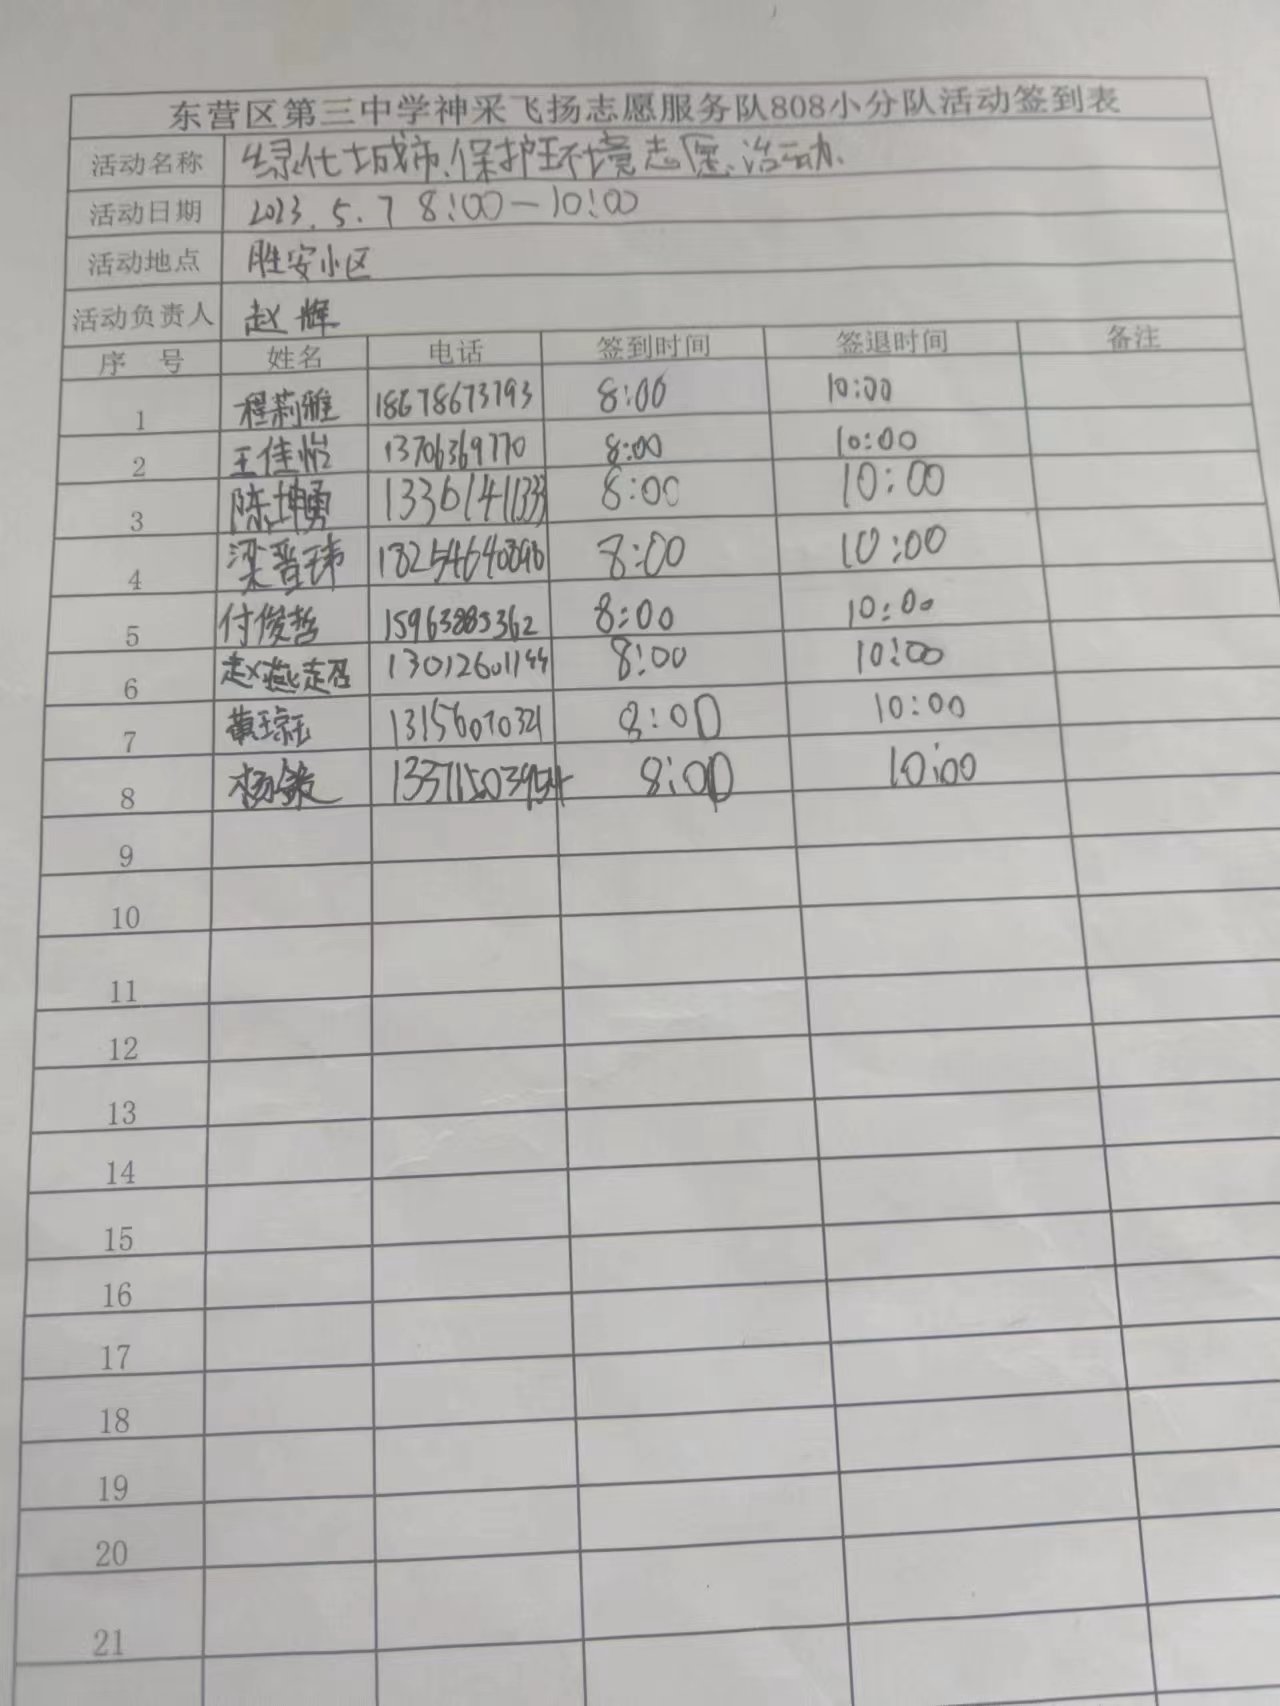 东营区第三中学神采飞扬志愿服务队808小分队活动签到表
活动名称 绿化城市、保护环境志愿活动.
活动日期 2023.5.7 8:00—10:00
活动地点 胜安小区
活动负责人 赵辉
序 号 姓名 电话 签到时间 签退时间 备注
1 程莉雅 18678673793 8:00 10:00
2 王佳怡 13706369770 8:00 10:00
3 陈坤勇 13361411333 8:00 10:00
4 梁晋玮 8:00 10:00
5 付俊哲 8:00 10:00
6 13012601144 8:00 10:00
7 黄琮钰 13156070321 8:00 10:00
8 8:00 10:00
9
10
11
12
13
14
15
16
17
18
19
20
21